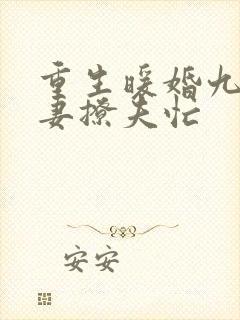 重生暖婚九
妻撩夫忙
安安